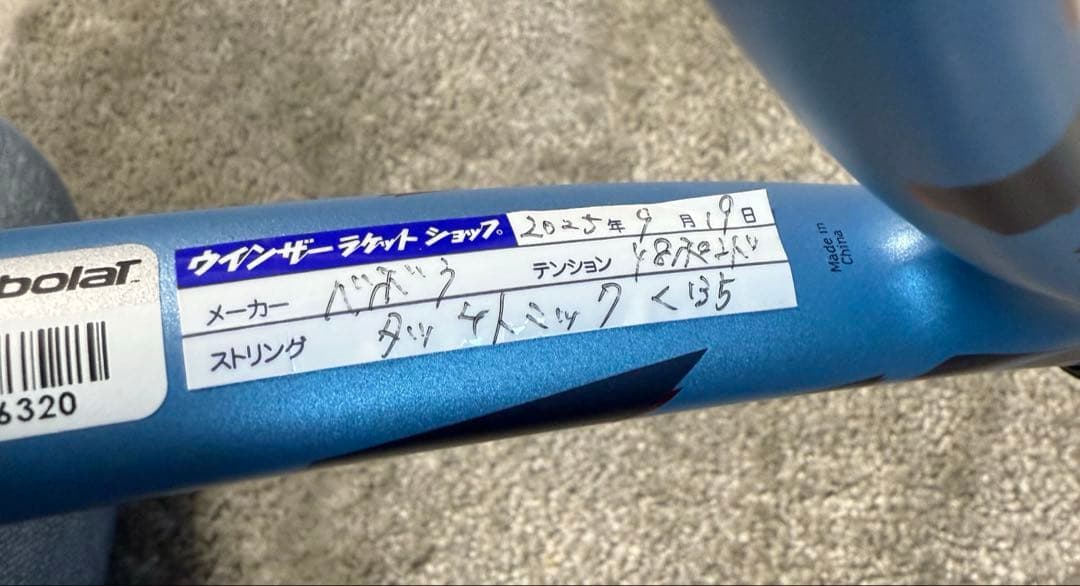 ウインザーラケットショップ。 2025年 9月 19日
メーカー バボラ テンション 48
ストリング タッチトニック <135
bolaT
6320
Made in
China